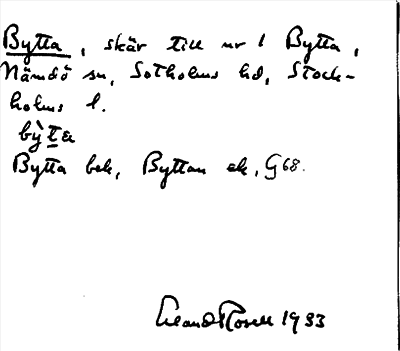 Bytta, skär till nr 1 Bytta,
Nämdö sn, Sotholms hd, Stock-
holms l.
bỳta
Bytta bek, Byttan ek, G68.
Erland Rosell 1933